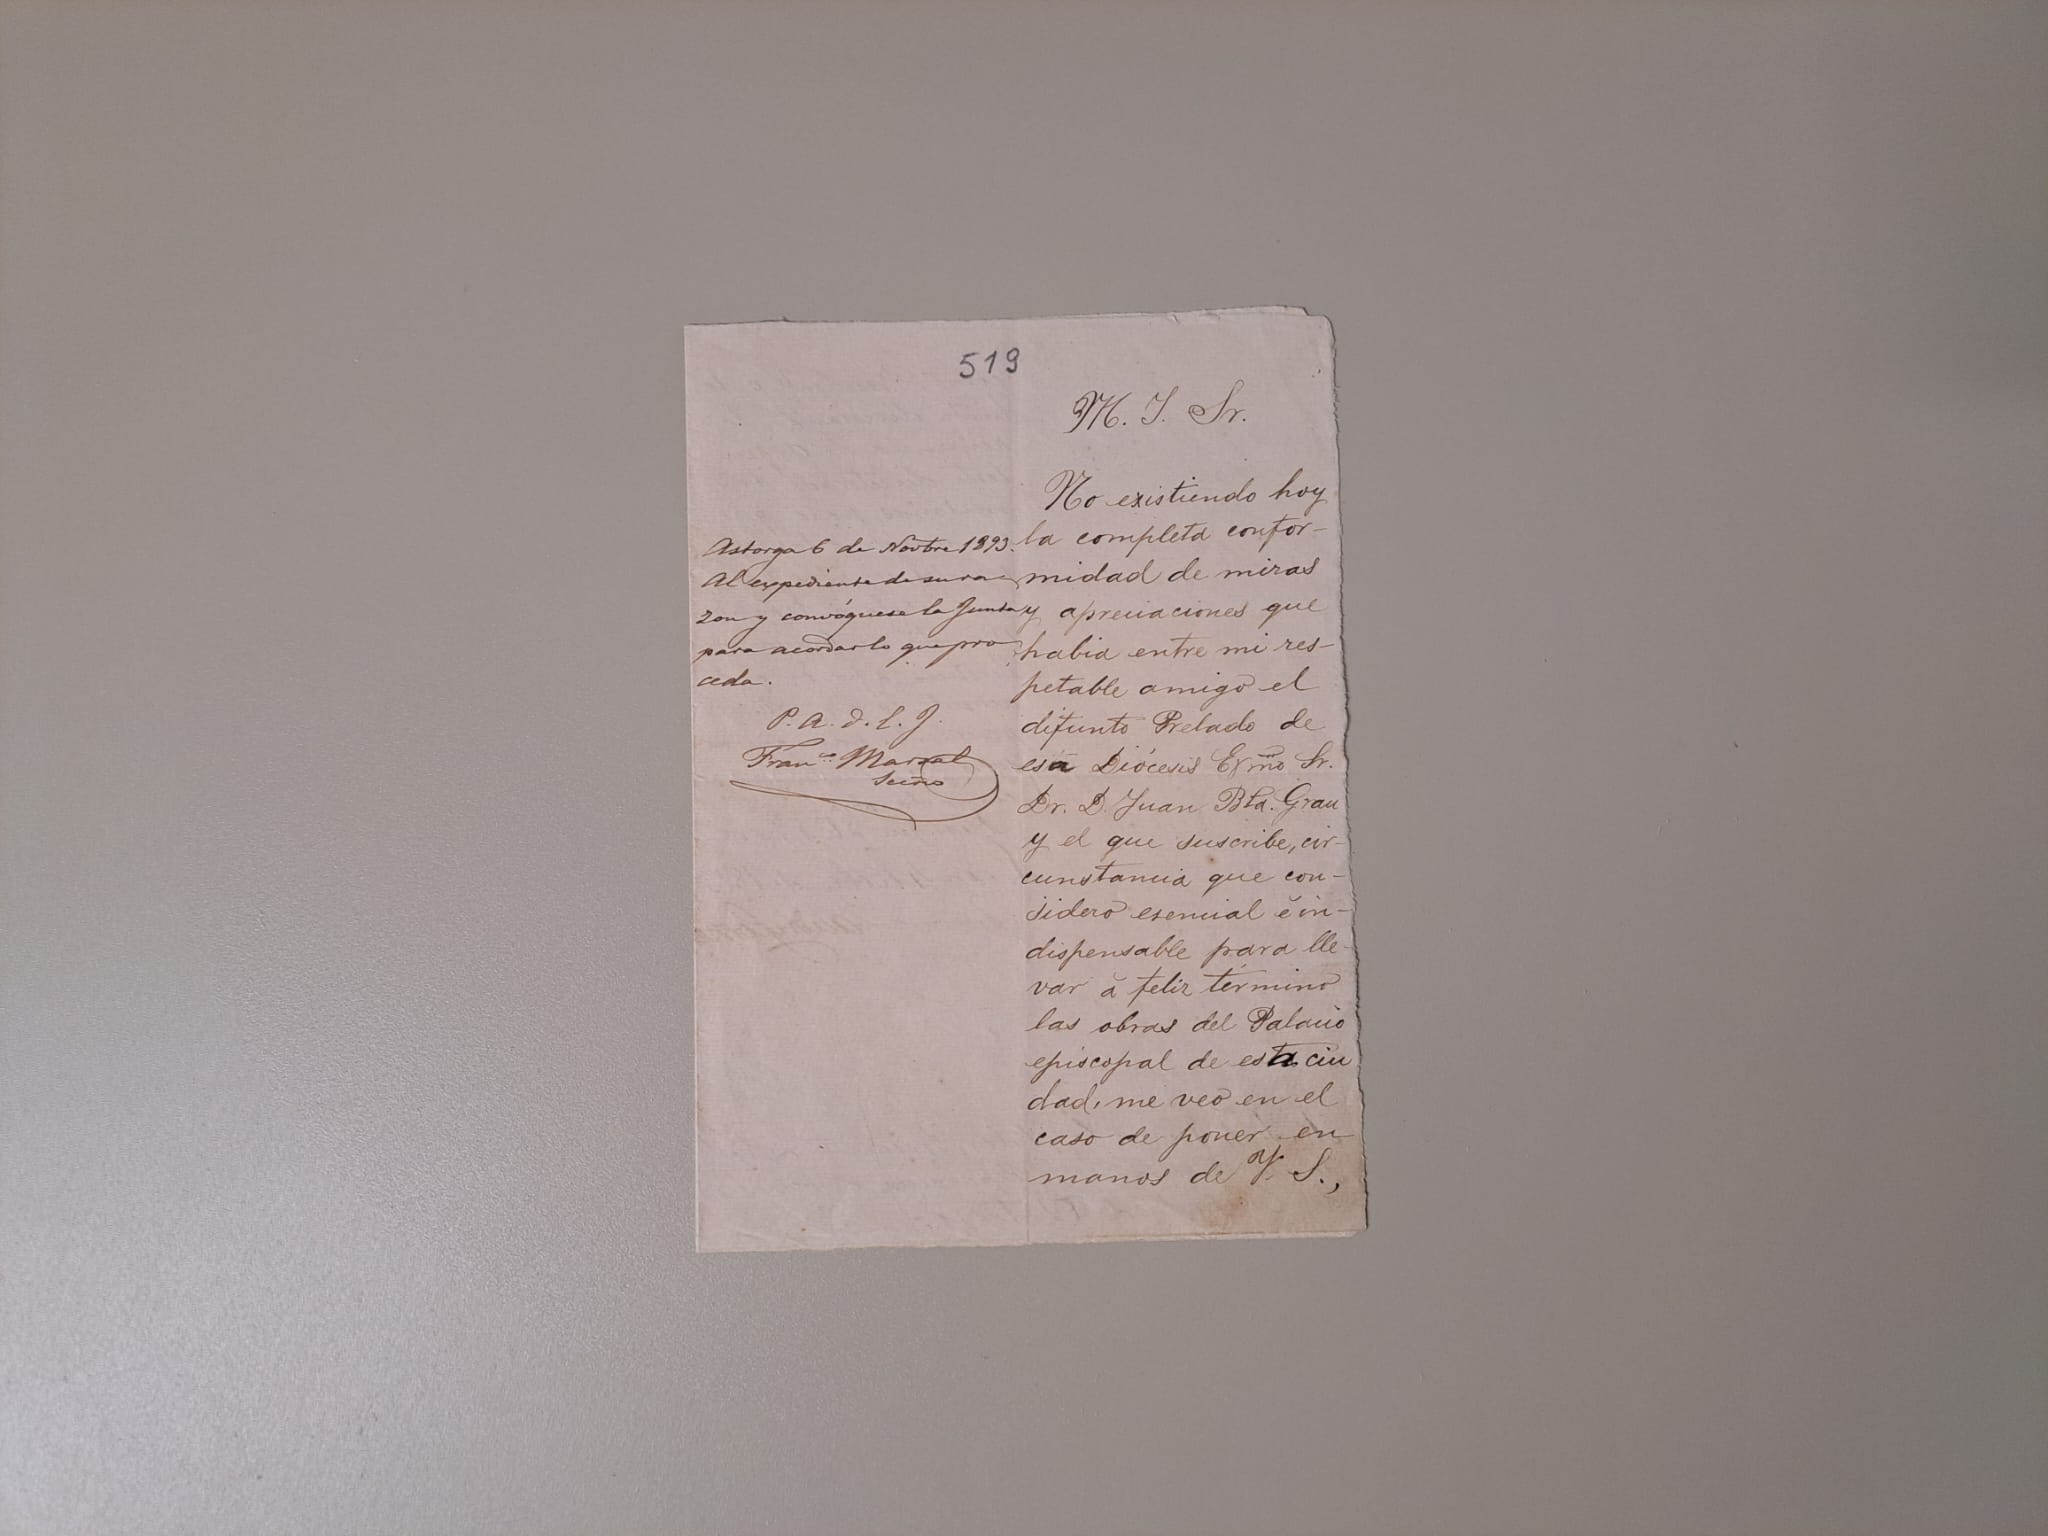 519
M. I. Sr.
No existiendo hoy
la completa confor-
midad de miras
y apreciaciones que
habia entre mi res-
petable amigo el
difunto Prelado de
esa Diócesis Exmo Sr.
Dr. D. Juan Bta. Grau
y el que suscribe, cir-
cunstancia que con-
sidero esencial é in-
dispensable para lle-
var á feliz término
las obras del Palacio
episcopal de esta ciu
dad, me veo en el
caso de poner en
manos de V. S.,
Astorga 6 de Novbre 1893.
Al expediente de su ra-
zon y convóquese la Junta
para acordar lo que pro
ceda.
P. A. d. l. J.
Franco Marsal
Secrio